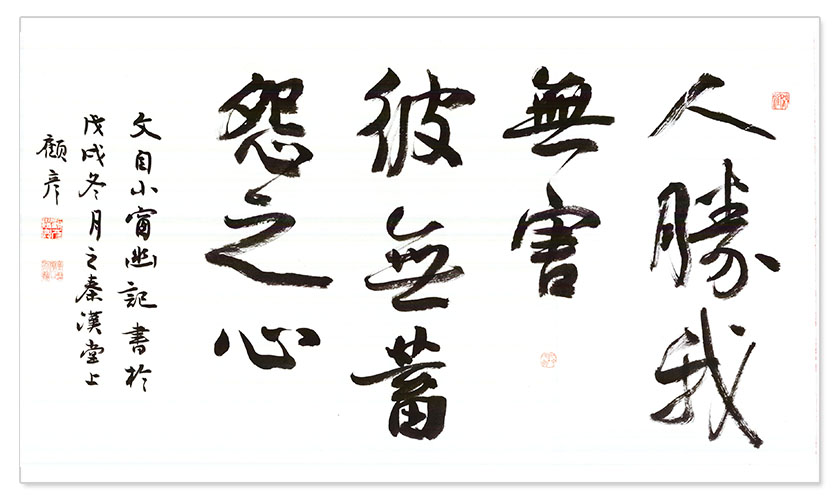 人勝我
無害
彼無蓄
怨之心
文自小窗幽記書於
戊戌冬月之秦漢堂上
顏彦